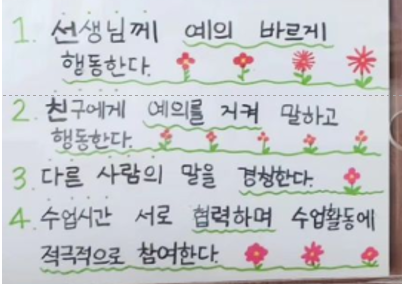 1. 선생님께 예의 바르게
행동한다.
2. 친구에게 예의를 지켜 말하고
행동한다.
3. 다른 사람의 말을 경청한다.
4. 수업시간 서로 협력하며 수업활동에
적극적으로 참여한다.